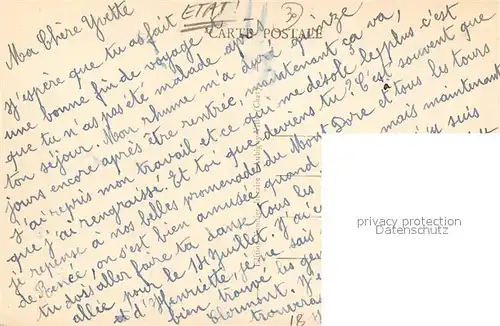 ETAT!
30
CARTE POSTALE
Ma Chère Yvette
J'espère que tu as fait
une bonne fin de voyage
que tu n'as pas été malade après
ton séjour. Mon rhume m'a duré quinze
jours encore après être rentrée, maintenant ça va,
j'ai repris mon travail et ce qui me désole le plus c'est
que j'ai rengraissé. Et toi que deviens tu? C'est souvent que
je repense a nos belles promenades du Mont Dore et tous les tours
de Rence, on s'est bien amusée quand mais maintenant
tu dois aller faire ta danse tous les j'y suis
allée pour le 14 Juillet. J'ai
et d'Henriette, je ne sais
bien trouvé les
Clermont.
trouvera
privacy protection
Datenschutz
1B